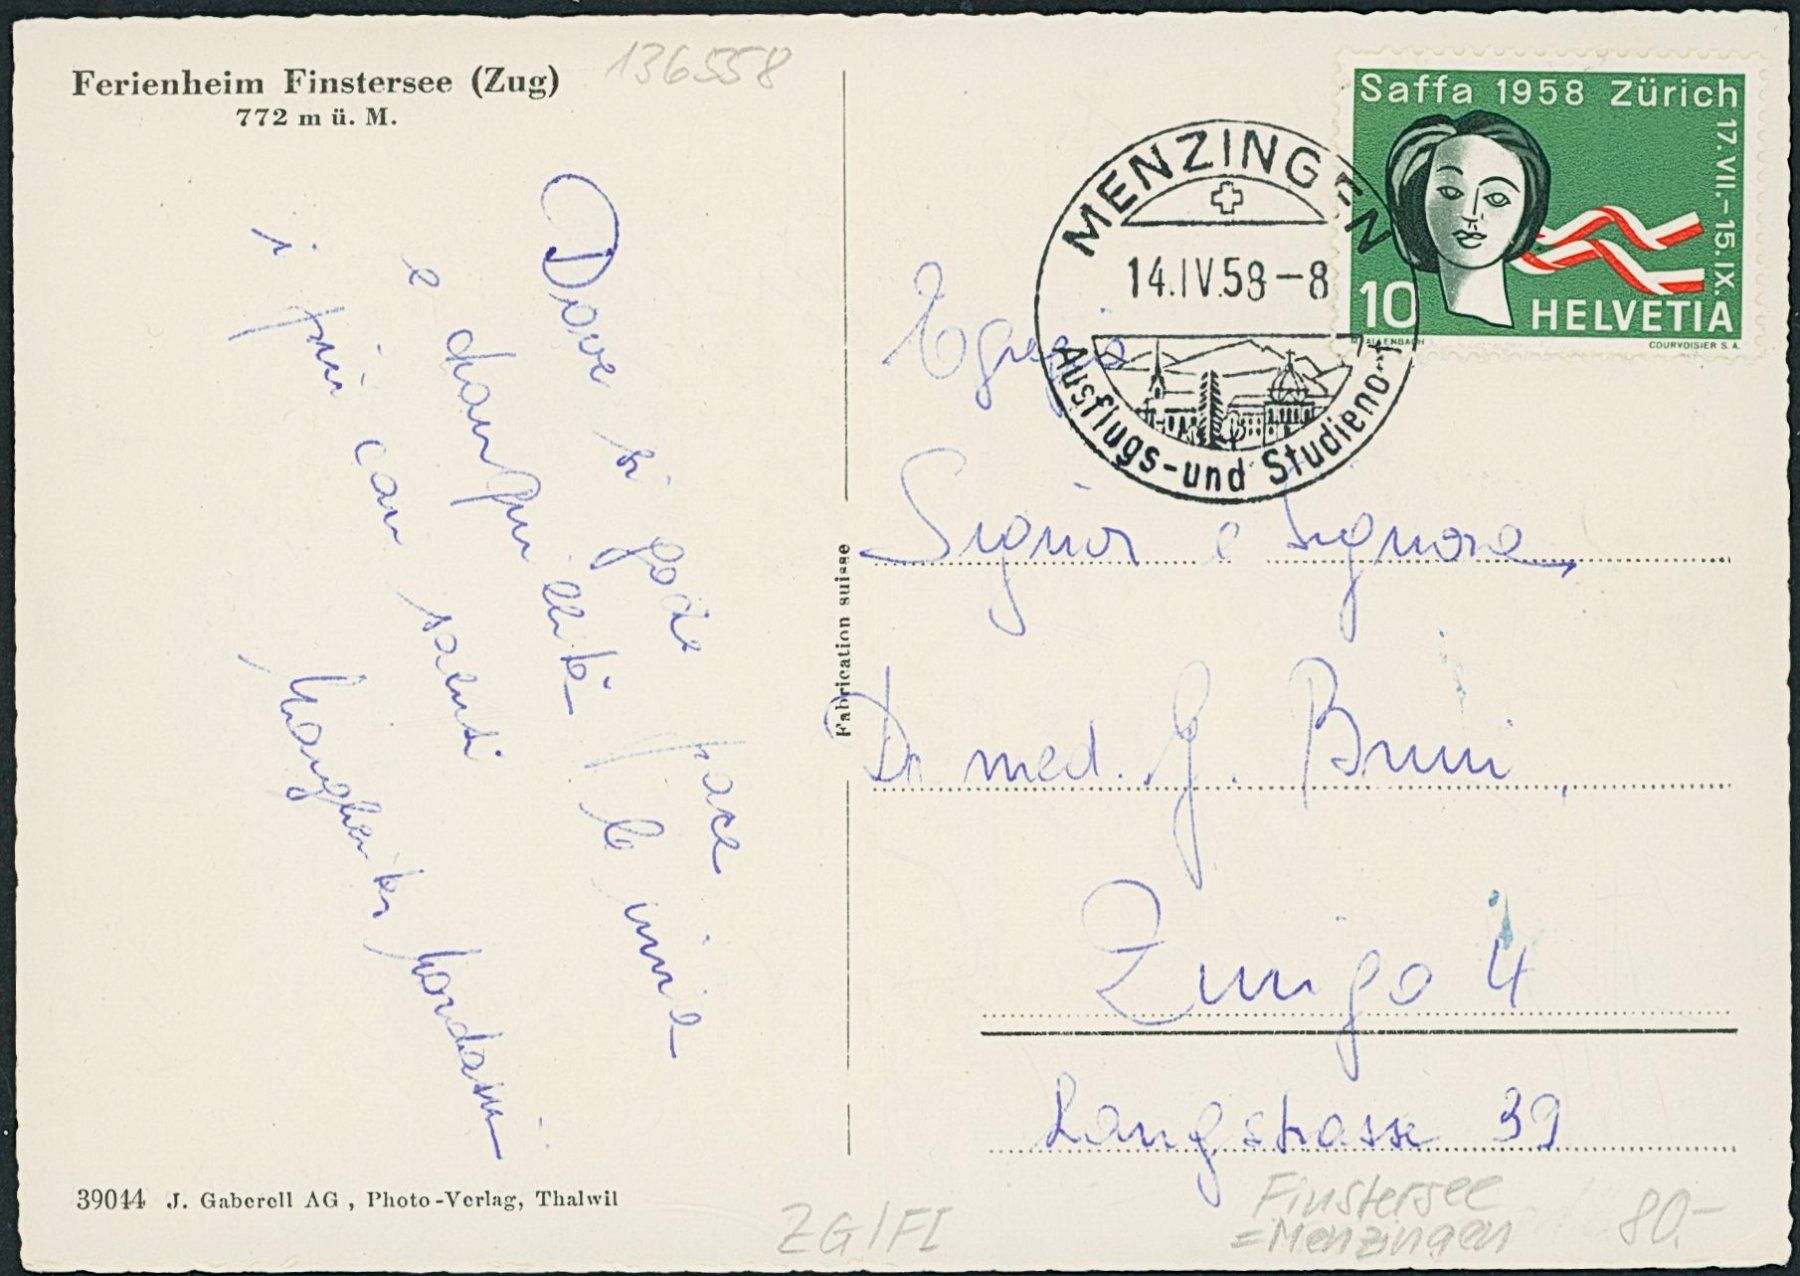 Ferienheim Finstersee (Zug)
772 m ü. M.
136558
Dove si gode pace
e tranquillità le invia
i più cari saluti
Margherita
Saffa 1958 Zürich
17. VII.-15. IX.
10 HELVETIA
COURVOISIER S. A.
MENZINGEN
14.IV.58-8
Ausflugs-und Studienort
Egregio
Signor e Signora
Dr med. G. Bruni
Zurigo 4
Langstrasse 39
Fabrication suisse
39044 J. Gaberell AG, Photo-Verlag, Thalwil
ZG/FI
Finstersee
=Menzingen
80.-